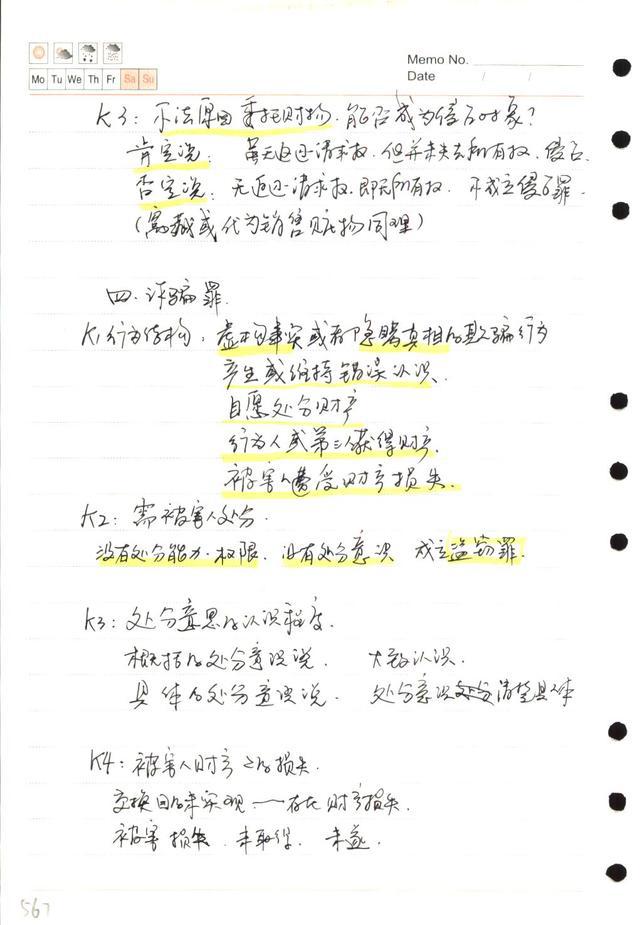 Memo No.
Mo Tu We Th Fr Sa Su
Date / /
K3：不法原因委托财物，能否成为侵占对象？
肯定说：虽无返还请求权，但并未丧失所有权，侵占.
否定说：无返还请求权，即无所有权，不成立侵占罪.
（窝藏或代为销售赃物同理）
四.诈骗罪.
K1行为结构：虚构事实或者隐瞒真相的欺骗行为
产生或维持错误认识.
自愿处分财产
行为人或第三人获得财产.
被害人遭受财产损失.
K2：需被害人处分.
没有处分能力.权限.没有处分意识 成立盗窃罪.
K3：处分意思的认识程度.
概括的处分意识说. 大致认识.
具体的处分意识说. 处分意识 清楚具体
K4：被害人财产上的损失.
交换目的未实现——存在财产损失.
被害损失.未取得. 未遂.
567